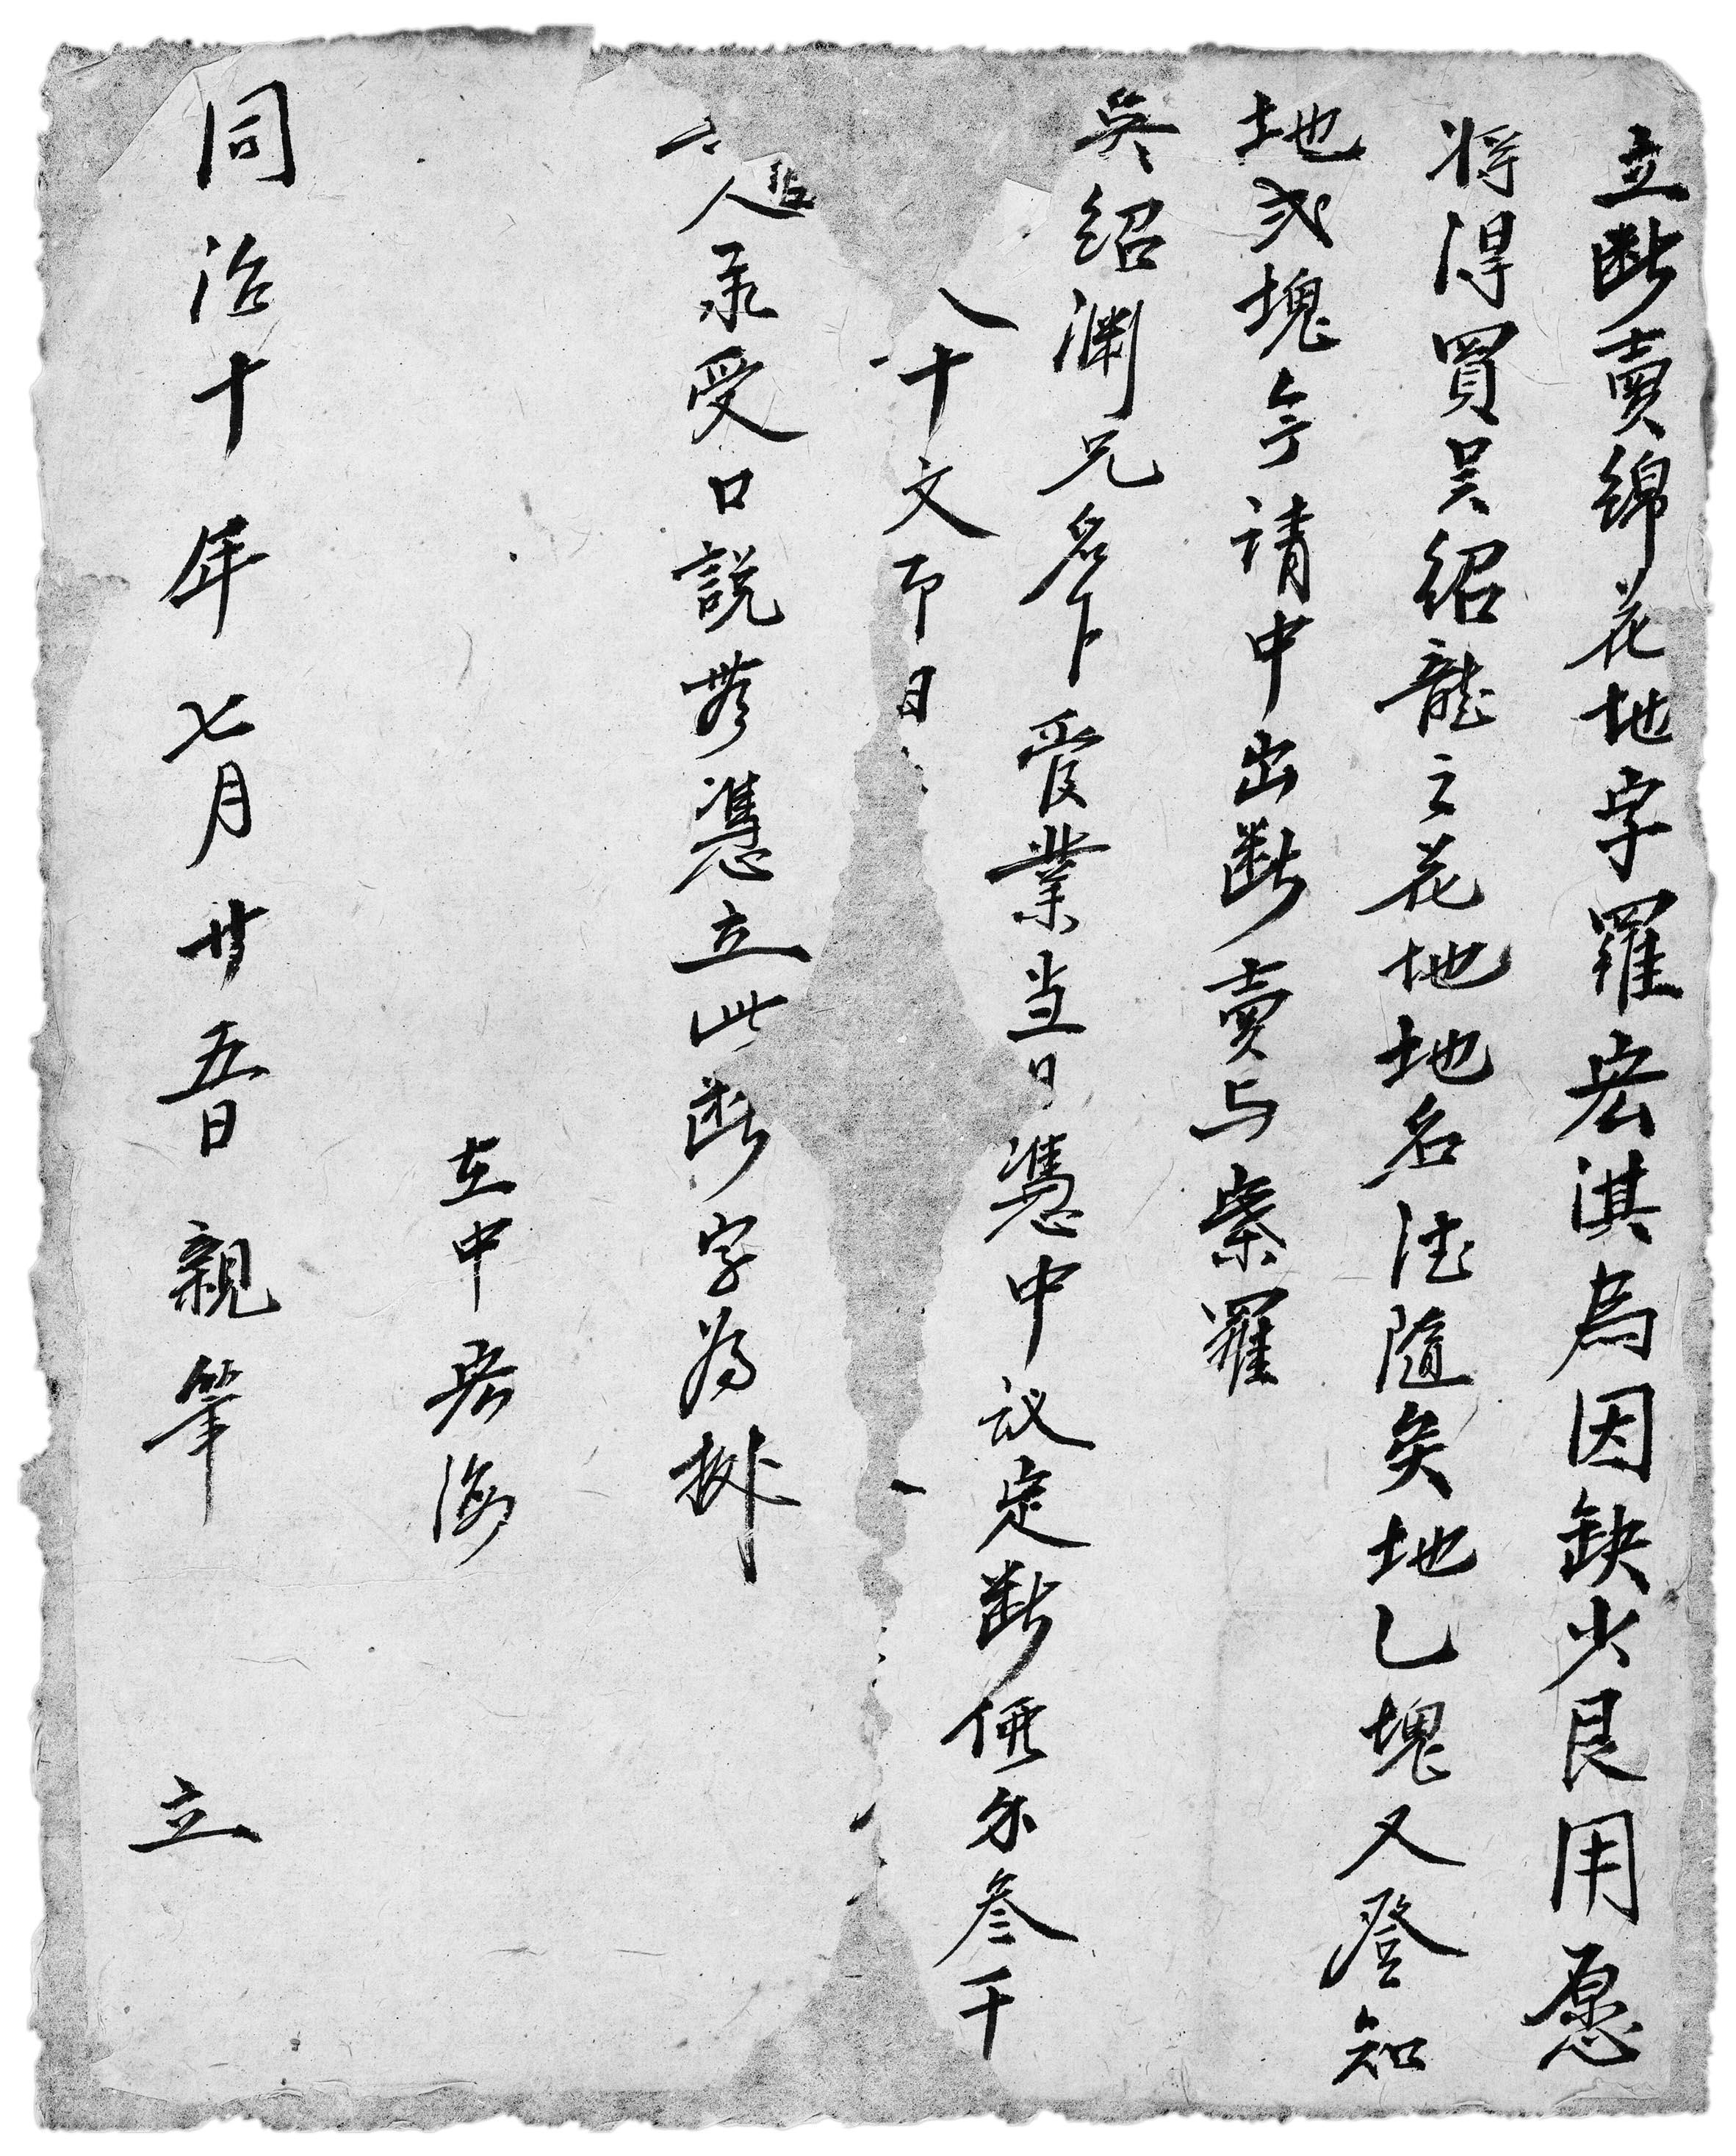 立断賣綿花地字羅宏淇為因缺少艮用愿
将淂買吴绍龍之花地地名法隨矣地乚塊又登知
地弍塊今请中出断賣与紫羅
吳绍渊兄名下受業当日憑中议定断價尔叁千
八十文即日
人承受口説無憑立此断字为據
在中宏海
同治十年七月廿五日親筆 立